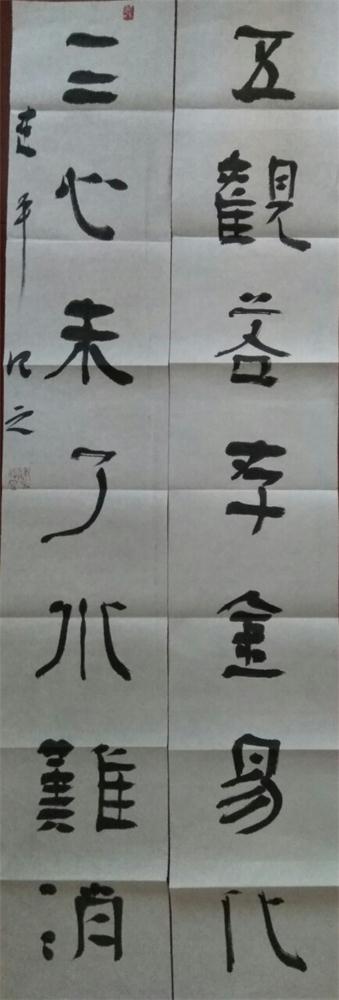 五觀若存金易化
三心未了水難消